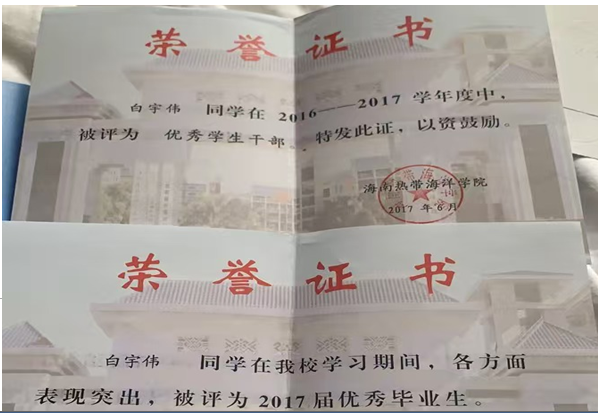 荣誉证书
白宇伟 同学在 2016——2017 学年度中，
被评为 优秀学生干部 。特发此证，以资鼓励。
海南热带海洋学院
2017 年 6 月
荣誉证书
白宇伟 同学在我校学习期间，各方面
表现突出，被评为 2017 届优秀毕业生。